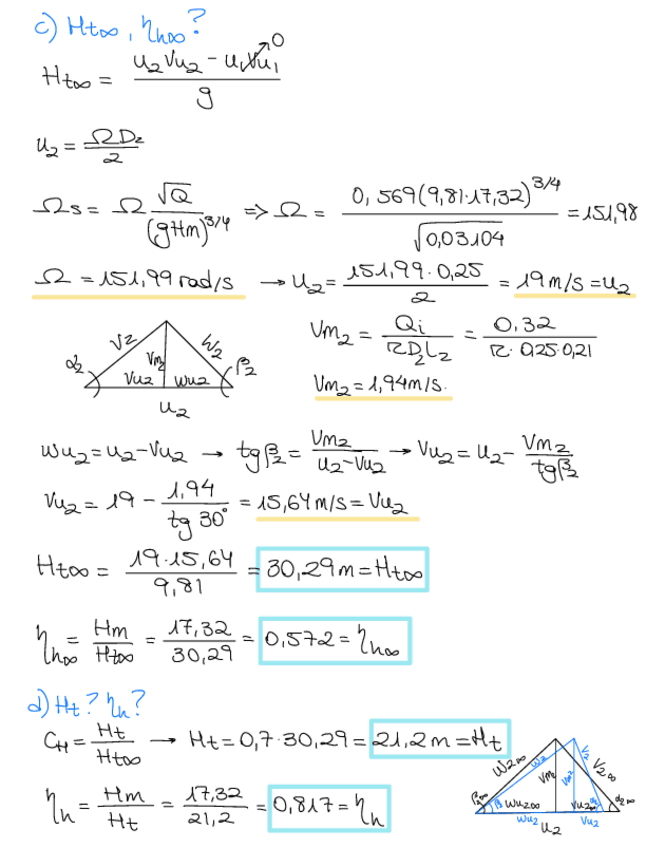 c) Ht∞, ηh∞?
Ht∞ = (u₂Vu₂ - u₁Vu₁→0) / g
u₂ = ΩD₂/2
Ωs = Ω √Q/(gHm)^3/4 => Ω = 0,569(9,81·17,32)^3/4 / √0,03104 = 151,98
Ω = 151,99 rad/s → u₂ = 151,99·0,25/2 = 19 m/s = u₂
α₂ V₂ Vm₂ W₂ β₂
Vu₂ Wu₂
u₂
Vm₂ = Qi/πD₂L₂ = 0,32/π·0,25·0,21
Vm₂ = 1,94 m/s.
Wu₂ = u₂ - Vu₂ → tgβ₂ = Vm₂/(u₂ - Vu₂) → Vu₂ = u₂ - Vm₂/tgβ₂
Vu₂ = 19 - 1,94/tg 30° = 15,64 m/s = Vu₂
Ht∞ = 19·15,64/9,81 = 30,29 m = Ht∞
ηh∞ = Hm/Ht∞ = 17,32/30,29 = 0,572 = ηh∞
d) Ht? ηh?
CH = Ht/Ht∞ → Ht = 0,7·30,29 = 21,2 m = Ht
ηh = Hm/Ht = 17,32/21,2 = 0,817 = ηh
W₂∞ W₂ Vm₂ Vm₂ V₂ V₂∞
β∞ β Wu₂∞ Vu₂∞ α₂∞
Wu₂ Vu₂
u₂